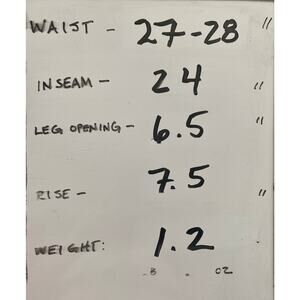 WAIST - 27-28 "
INSEAM - 24 "
LEG OPENING - 6.5 "
RISE - 7.5 "
WEIGHT: 1.2
OZ